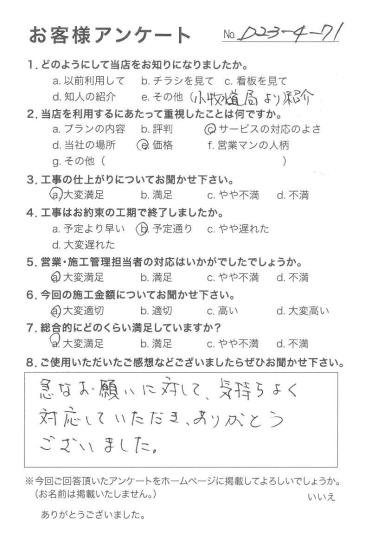 お客様アンケート No. D23-4-71
1．どのようにして当店をお知りになりましたか。
a. 以前利用して b. チラシを見て c. 看板を見て
d. 知人の紹介 e. その他（小牧水道局より）紹介
2．当店を利用するにあたって重視したことは何ですか。
a. プランの内容 b. 評判 c. サービスの対応のよさ
d. 当社の場所 e. 価格 f. 営業マンの人柄
g. その他（ ）
3．工事の仕上がりについてお聞かせ下さい。
a. 大変満足 b. 満足 c. やや不満 d. 不満
4．工事はお約束の工期で終了しましたか。
a. 予定より早い b. 予定通り c. やや遅れた
d. 大変遅れた
5．営業・施工管理担当者の対応はいかがでしたでしょうか。
a. 大変満足 b. 満足 c. やや不満 d. 不満
6．今回の施工金額についてお聞かせ下さい。
a. 大変適切 b. 適切 c. 高い d. 大変高い
7．総合的にどのくらい満足していますか？
a. 大変満足 b. 満足 c. やや不満 d. 不満
8．ご使用いただいたご感想などございましたらぜひお聞かせ下さい。
急なお願いに対して、気持ちよく
対応していただき、ありがとう
ございました。
※今回ご回答頂いたアンケートをホームページに掲載してよろしいでしょうか。
（お名前は掲載いたしません。） いいえ
ありがとうございました。